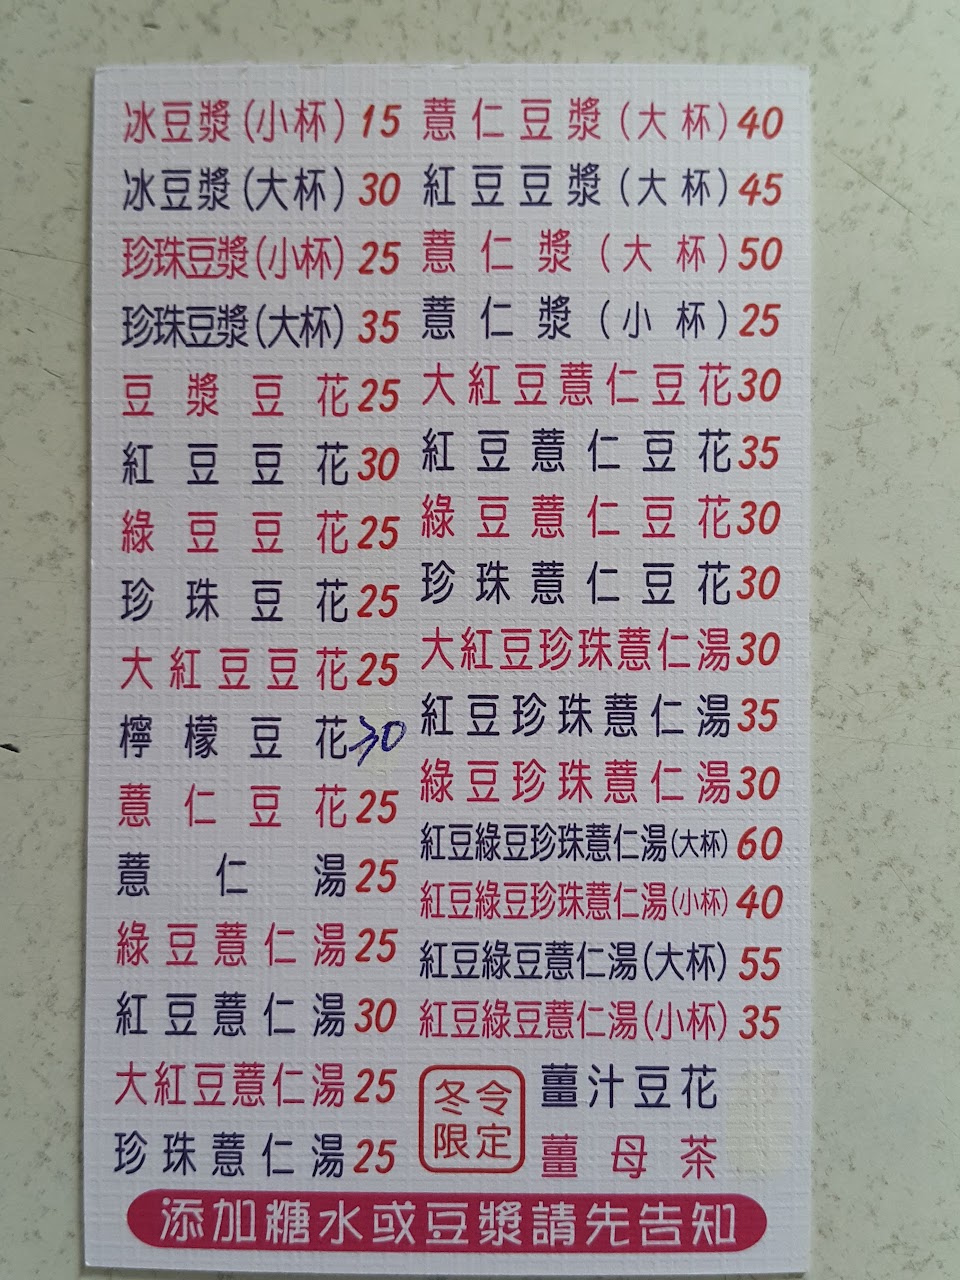 冰豆漿(小杯)15
冰豆漿(大杯)30
珍珠豆漿(小杯)25
珍珠豆漿(大杯)35
豆漿豆花25
紅豆豆花30
綠豆豆花25
珍珠豆花25
大紅豆豆花25
檸檬豆花30
薏仁豆花25
薏仁湯25
綠豆薏仁湯25
紅豆薏仁湯30
大紅豆薏仁湯25
珍珠薏仁湯25
薏仁豆漿(大杯)40
紅豆豆漿(大杯)45
薏仁漿(大杯)50
薏仁漿(小杯)25
大紅豆薏仁豆花30
紅豆薏仁豆花35
綠豆薏仁豆花30
珍珠薏仁豆花30
大紅豆珍珠薏仁湯30
紅豆珍珠薏仁湯35
綠豆珍珠薏仁湯30
紅豆綠豆珍珠薏仁湯(大杯)60
紅豆綠豆珍珠薏仁湯(小杯)40
紅豆綠豆薏仁湯(大杯)55
紅豆綠豆薏仁湯(小杯)35
冬令
限定
薑汁豆花
薑母茶
添加糖水或豆漿請先告知